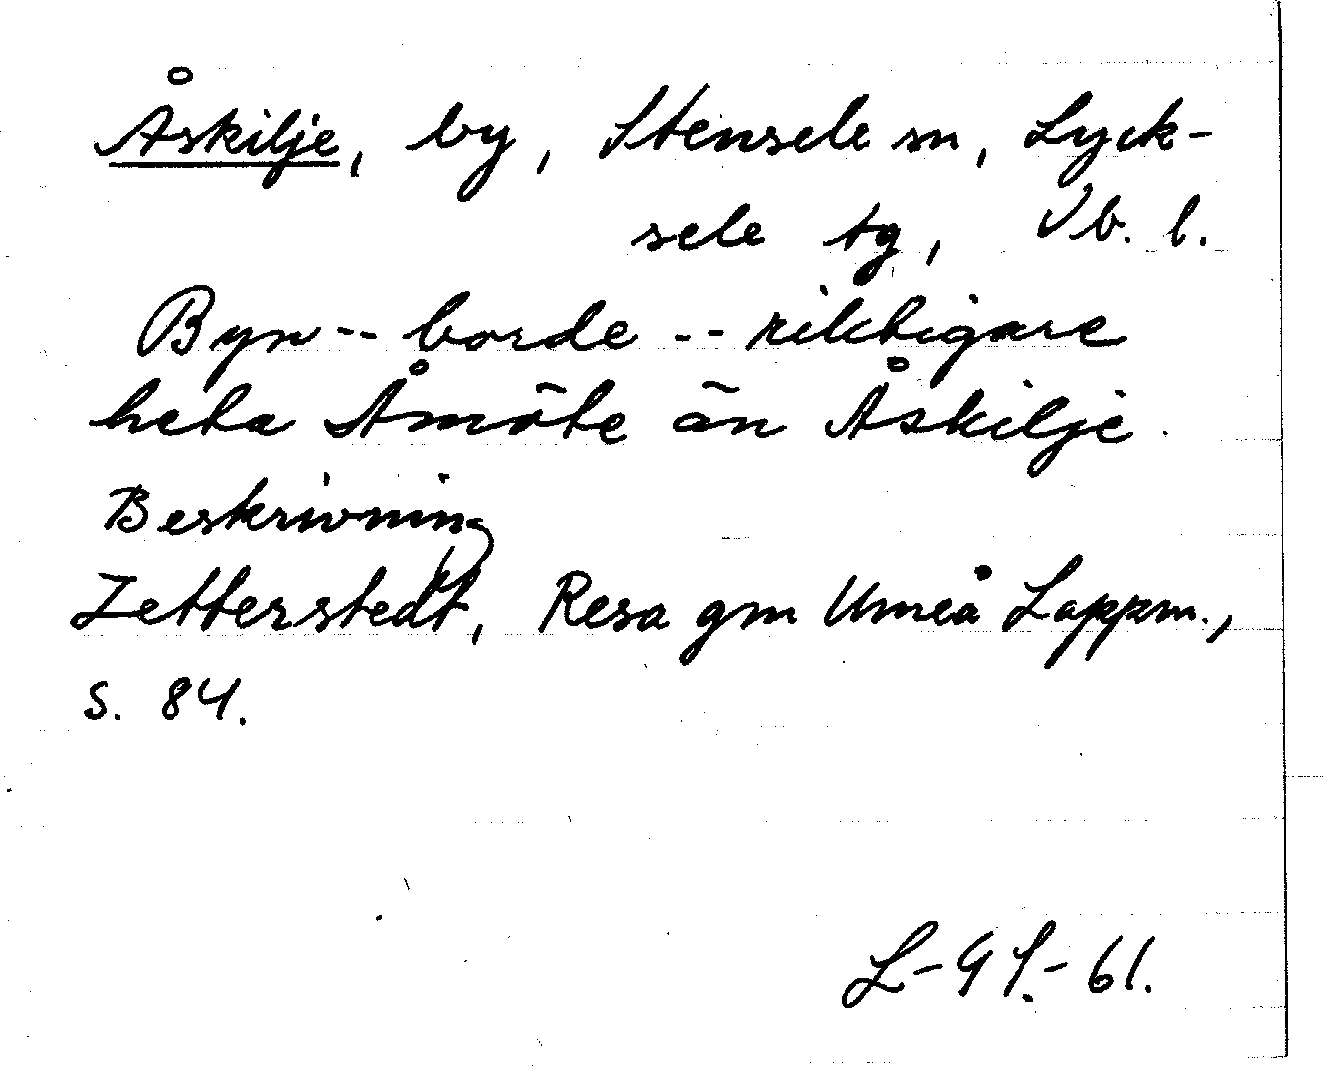 Åskilje, by, Stensele sn, Lyck-
sele tg, Vb. l.
Byn -- borde -- riktigare
heta Åmöte än Åskilje.
Beskrivning
Zetterstedt, Resa gm Umeå Lappm.,
s. 84.
L-gS.-61.